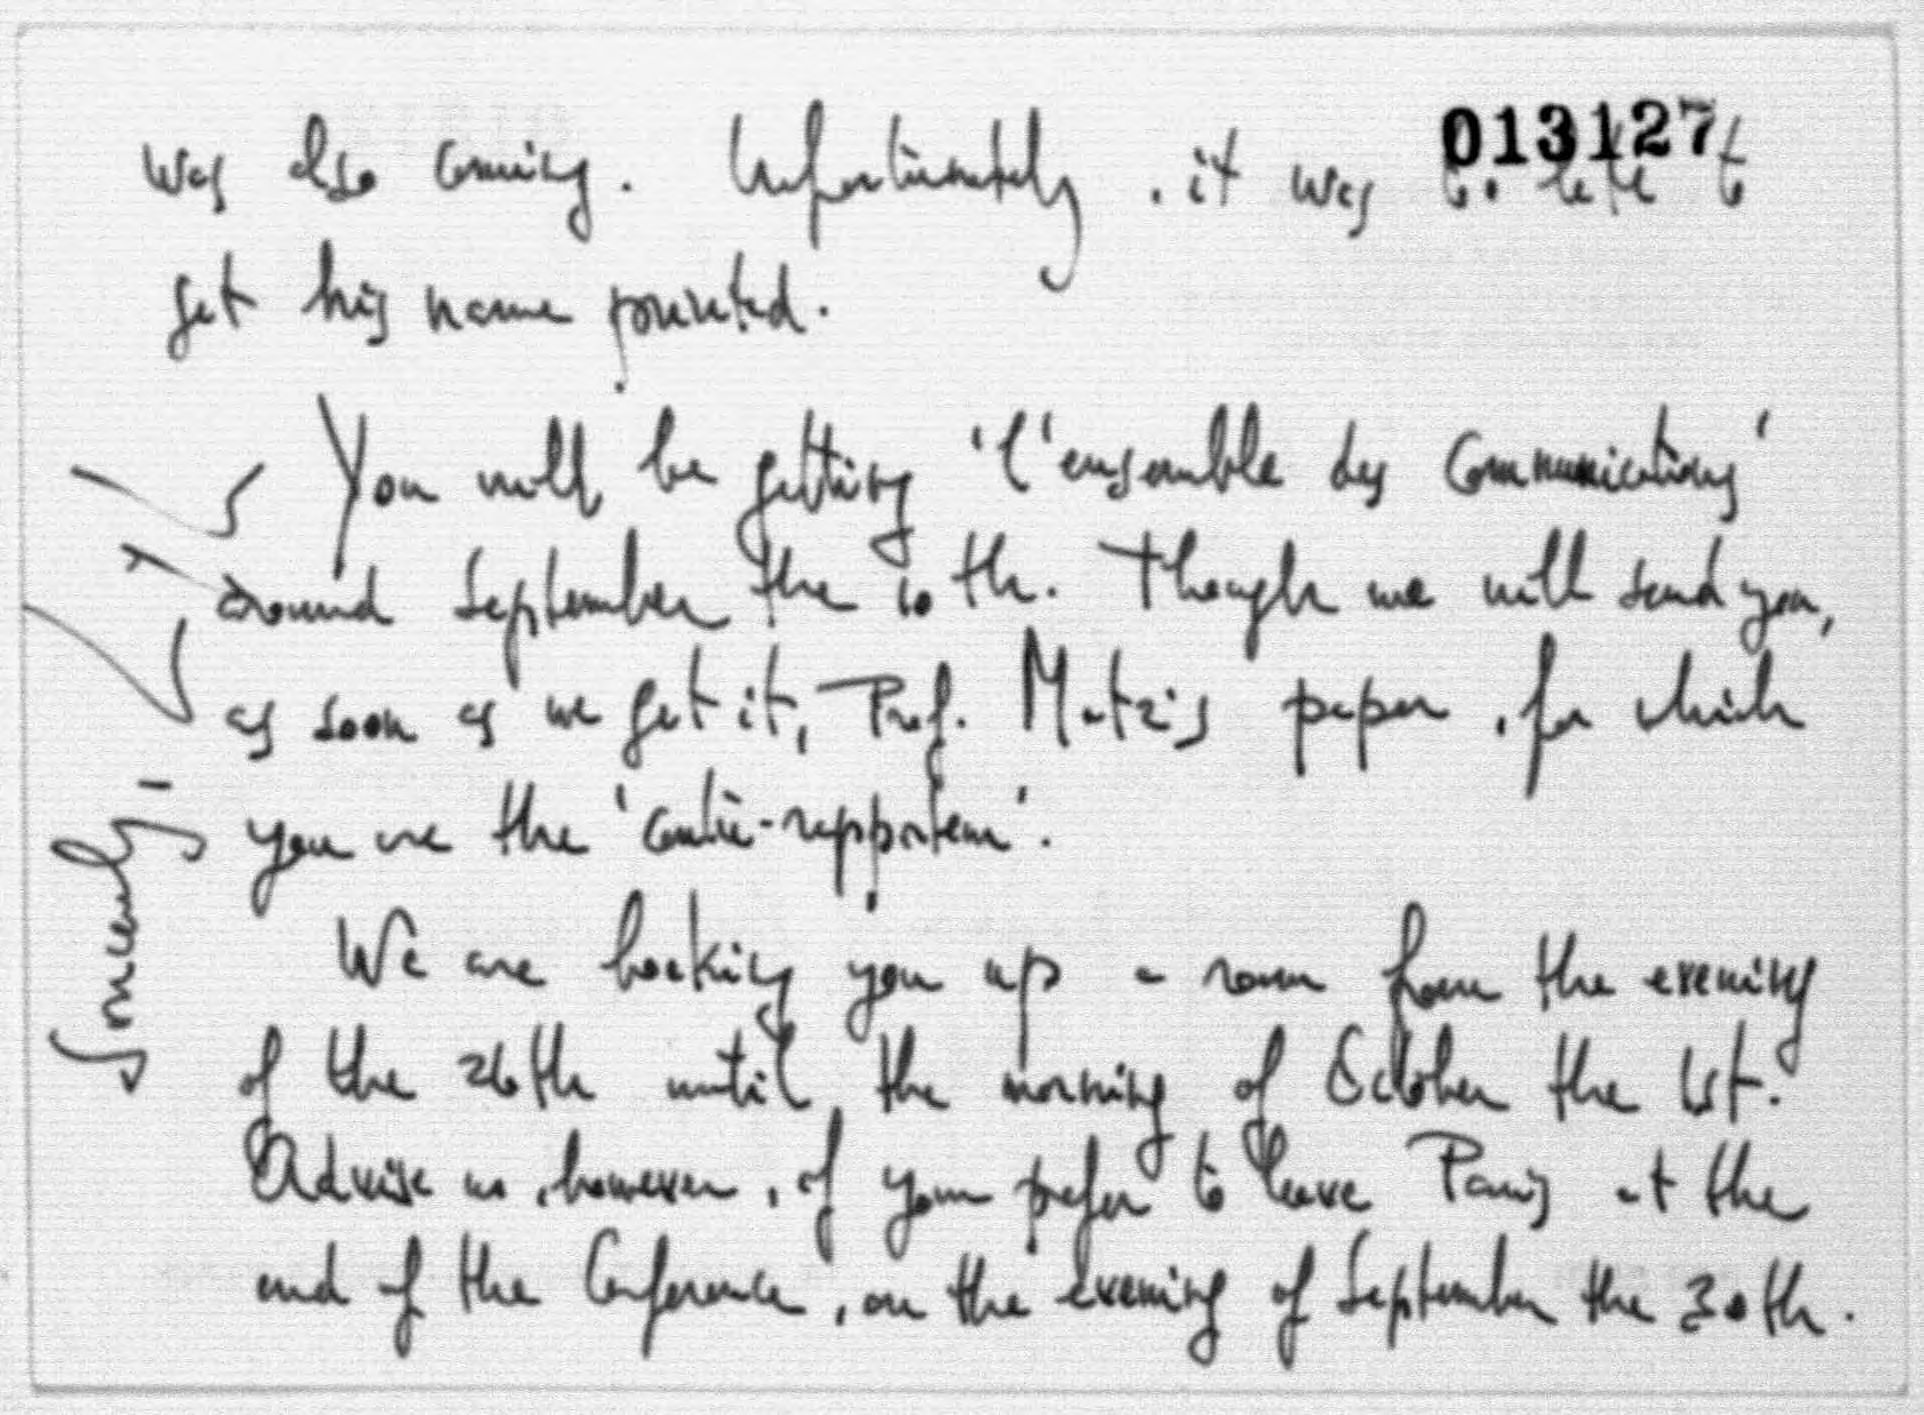 013127
was also coming. Unfortunately, it was too late to
get his name printed.
You will be getting 'l'ensemble des Communications'
around September the 10th. Though we will send you,
as soon as we get it, Prof. Matzi's paper, for which
you are the 'contre-rapporteur'.
We are booking you up a room from the evening
of the 26th until the morning of October the 1st.
Advise us, however, if you prefer to leave Paris at the
end of the Conference, on the evening of September the 30th.
Sincerely,